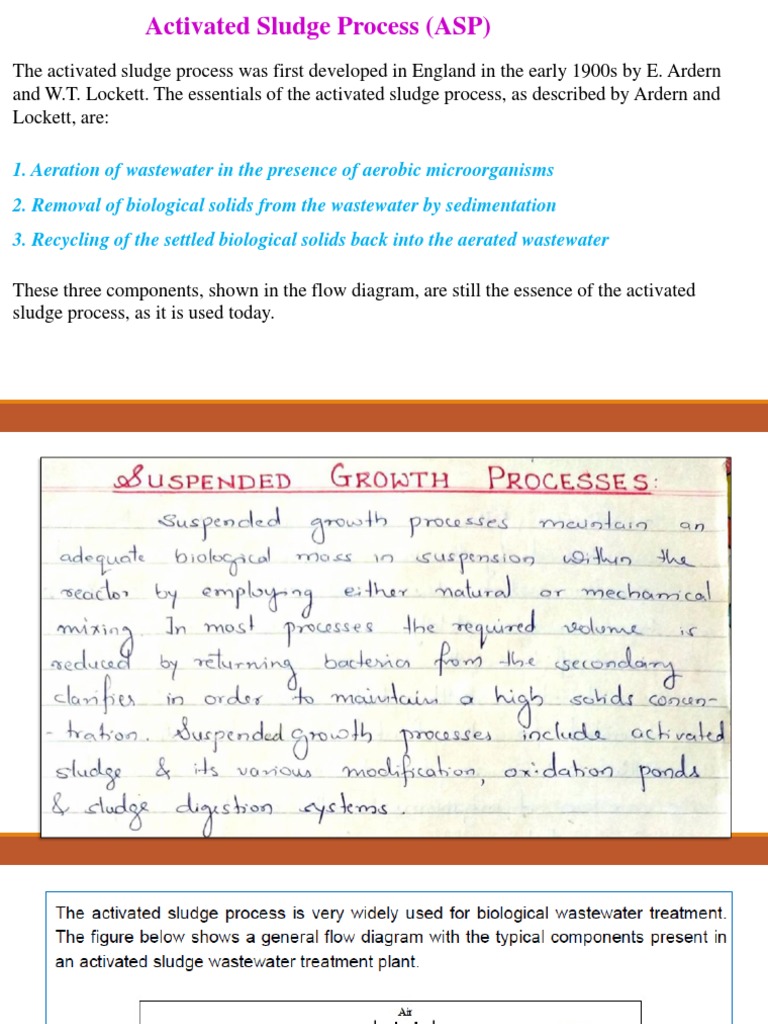 Activated Sludge Process (ASP)
The activated sludge process was first developed in England in the early 1900s by E. Ardern
and W.T. Lockett. The essentials of the activated sludge process, as described by Ardern and
Lockett, are:
1. Aeration of wastewater in the presence of aerobic microorganisms
2. Removal of biological solids from the wastewater by sedimentation
3. Recycling of the settled biological solids back into the aerated wastewater
These three components, shown in the flow diagram, are still the essence of the activated
sludge process, as it is used today.
SUSPENDED GROWTH PROCESSES:
Suspended growth processes maintain an
adequate biological mass in suspension within the
reactor by employing either natural or mechanical
mixing. In most processes the required volume is
reduced by returning bacteria from the secondary
clarifier in order to maintain a high solids concen-
-tration. Suspended growth processes include activated
sludge & its various modification, oxidation ponds
& sludge digestion systems.
The activated sludge process is very widely used for biological wastewater treatment.
The figure below shows a general flow diagram with the typical components present in
an activated sludge wastewater treatment plant.
Air